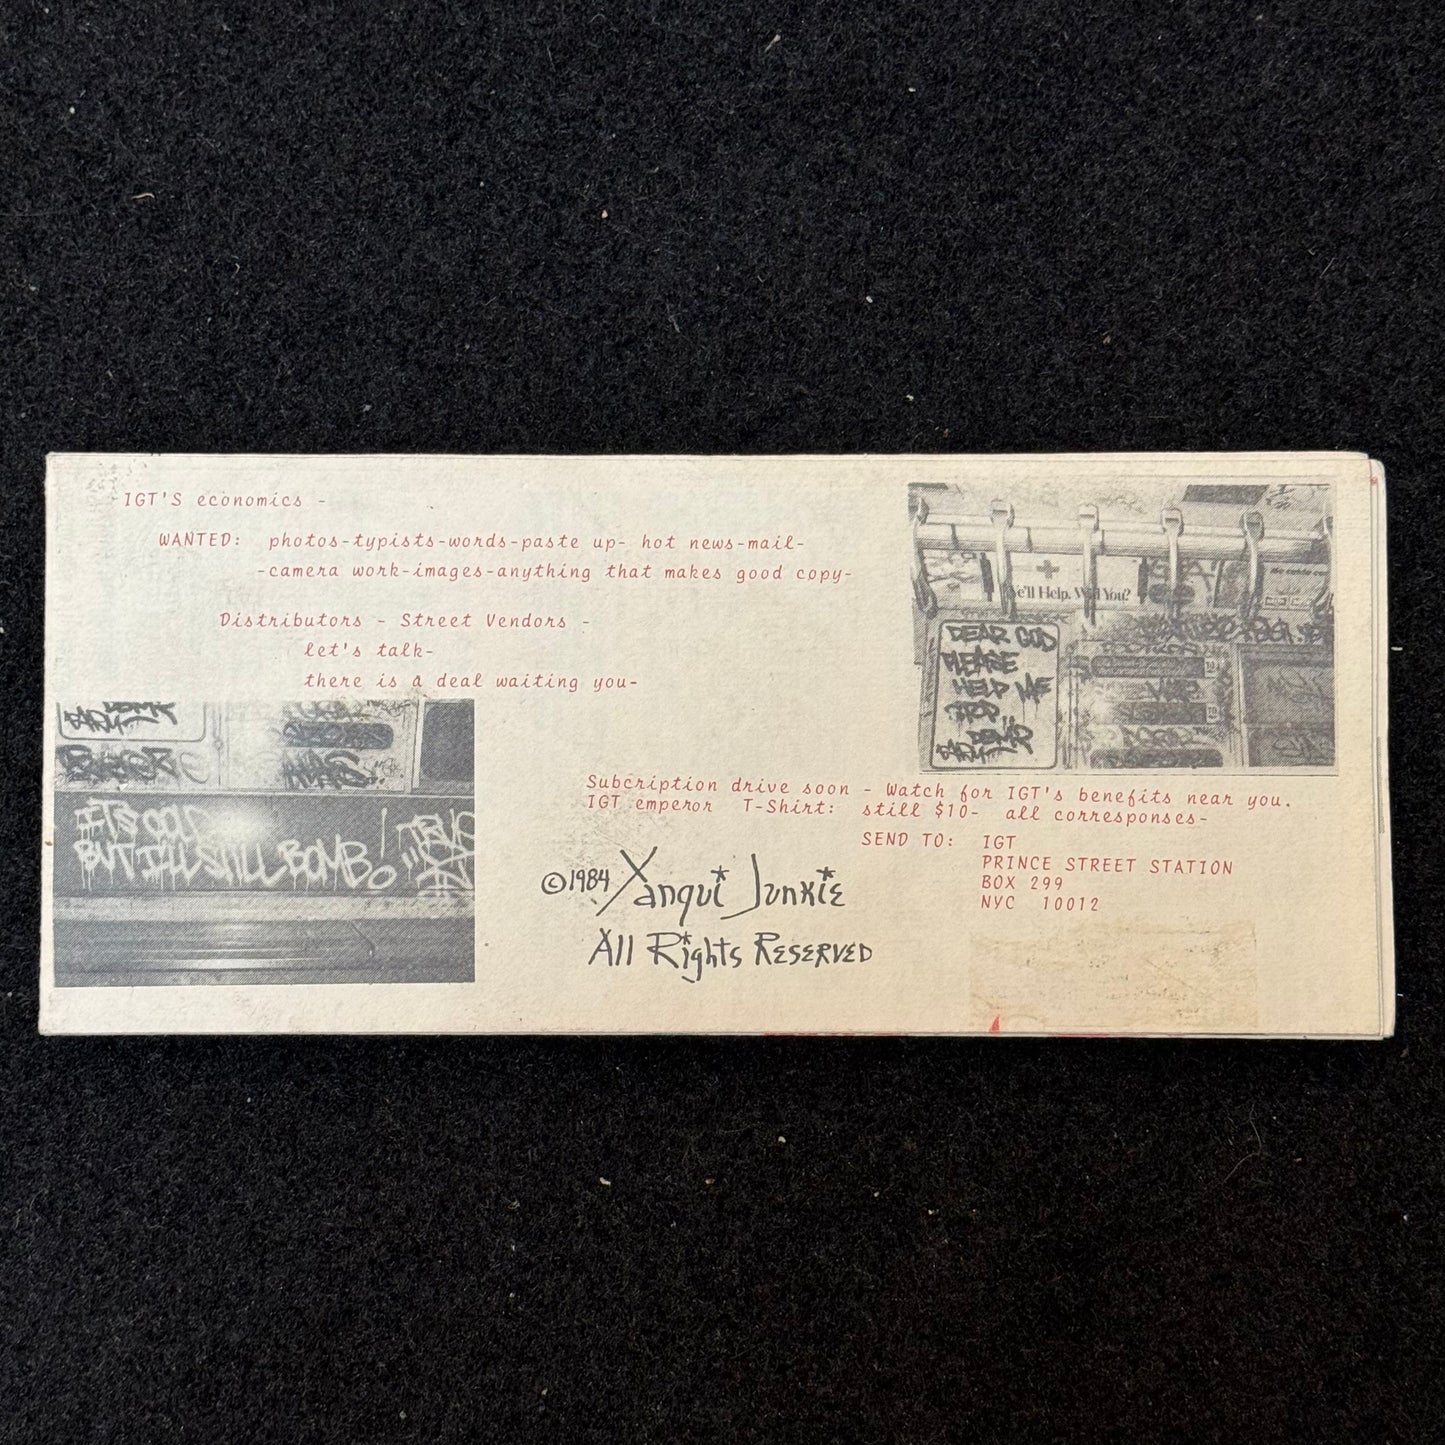 -IGT'S economics -
WANTED: photos-typists-words-paste up- hot news-mail-
-camera work-images-anything that makes good copy-
Distributors - Street Vendors -
let's talk-
there is a deal waiting you-
We'll Help. Will You?
DEAR GOD
PLEASE
HELP ME
STOP
IT'S COLD
BUT I'LL STILL BOMB!
Subcription drive soon - Watch for IGT's benefits near you.
IGT emperor T-Shirt: still $10- all corresponses-
SEND TO: IGT
PRINCE STREET STATION
BOX 299
NYC 10012
©1984 Yanqui Junkie
All Rights Reserved